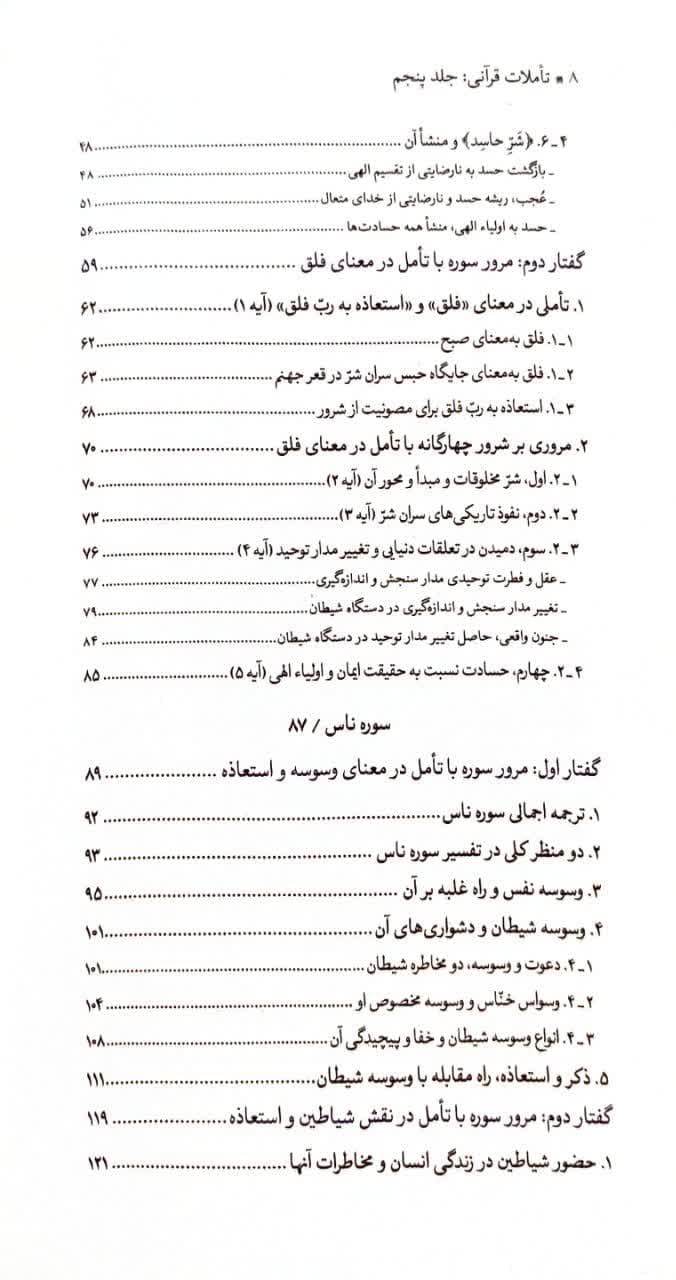 ۸ ■ تأملات قرآنی: جلد پنجم
۴ـ۶. ﴿شَرِّ حاسِد﴾ و منشأ آن ................ ۴۸
ـ بازگشت حسد به نارضایتی از تقسیم الهی ................ ۴۸
ـ عُجب، ریشه حسد و نارضایتی از خدای متعال ................ ۵۱
ـ حسد به اولیاء الهی، منشأ همه حسادت‌ها ................ ۵۶
گفتار دوم: مرور سوره با تأمل در معنای فلق ................ ۵۹
۱. تأملی در معنای «فلق» و «استعاذه به ربّ فلق» (آیه ۱) ................ ۶۲
۱ـ۱. فلق به‌معنای صبح ................ ۶۲
۱ـ۲. فلق به‌معنای جایگاه حبس سران شرّ در قعر جهنم ................ ۶۳
۱ـ۳. استعاذه به ربّ فلق برای مصونیت از شرور ................ ۶۸
۲. مروری بر شرور چهارگانه با تأمل در معنای فلق ................ ۷۰
۲ـ۱. اول، شرّ مخلوقات و مبدأ و محور آن (آیه ۲) ................ ۷۰
۲ـ۲. دوم، نفوذ تاریکی‌های سران شرّ (آیه ۳) ................ ۷۳
۲ـ۳. سوم، دمیدن در تعلقات دنیایی و تغییر مدار توحید (آیه ۴) ................ ۷۶
ـ عقل و فطرت توحیدی مدار سنجش و اندازه‌گیری ................ ۷۷
ـ تغییر مدار سنجش و اندازه‌گیری در دستگاه شیطان ................ ۷۹
ـ جنون واقعی، حاصل تغییر مدار توحید در دستگاه شیطان ................ ۸۴
۲ـ۴. چهارم، حسادت نسبت به حقیقت ایمان و اولیاء الهی (آیه ۵) ................ ۸۵
سوره ناس / ۸۷
گفتار اول: مرور سوره با تأمل در معنای وسوسه و استعاذه ................ ۸۹
۱. ترجمه اجمالی سوره ناس ................ ۹۲
۲. دو منظر کلی در تفسیر سوره ناس ................ ۹۳
۳. وسوسه نفس و راه غلبه بر آن ................ ۹۵
۴. وسوسه شیطان و دشواری‌های آن ................ ۱۰۱
۴ـ۱. دعوت و وسوسه، دو مخاطره شیطان ................ ۱۰۱
۴ـ۲. وسواس خنّاس و وسوسه مخصوص او ................ ۱۰۴
۴ـ۳. انواع وسوسه شیطان و خفا و پیچیدگی آن ................ ۱۰۸
۵. ذکر و استعاذه، راه مقابله با وسوسه شیطان ................ ۱۱۱
گفتار دوم: مرور سوره با تأمل در نقش شیاطین و استعاذه ................ ۱۱۹
۱. حضور شیاطین در زندگی انسان و مخاطرات آنها ................ ۱۲۱